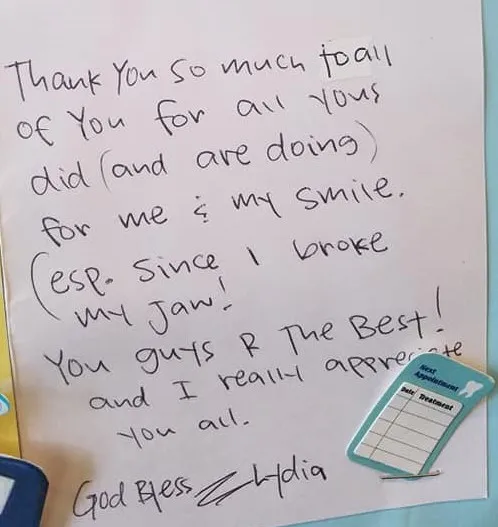 Thank You so much to all
of You for all yous
did (and are doing)
for me & my smile.
(esp. since I broke
my jaw!
You guys R The Best!
and I really appreciate
you all.
God Bless Lydia
Next
Appointment
Date Treatment